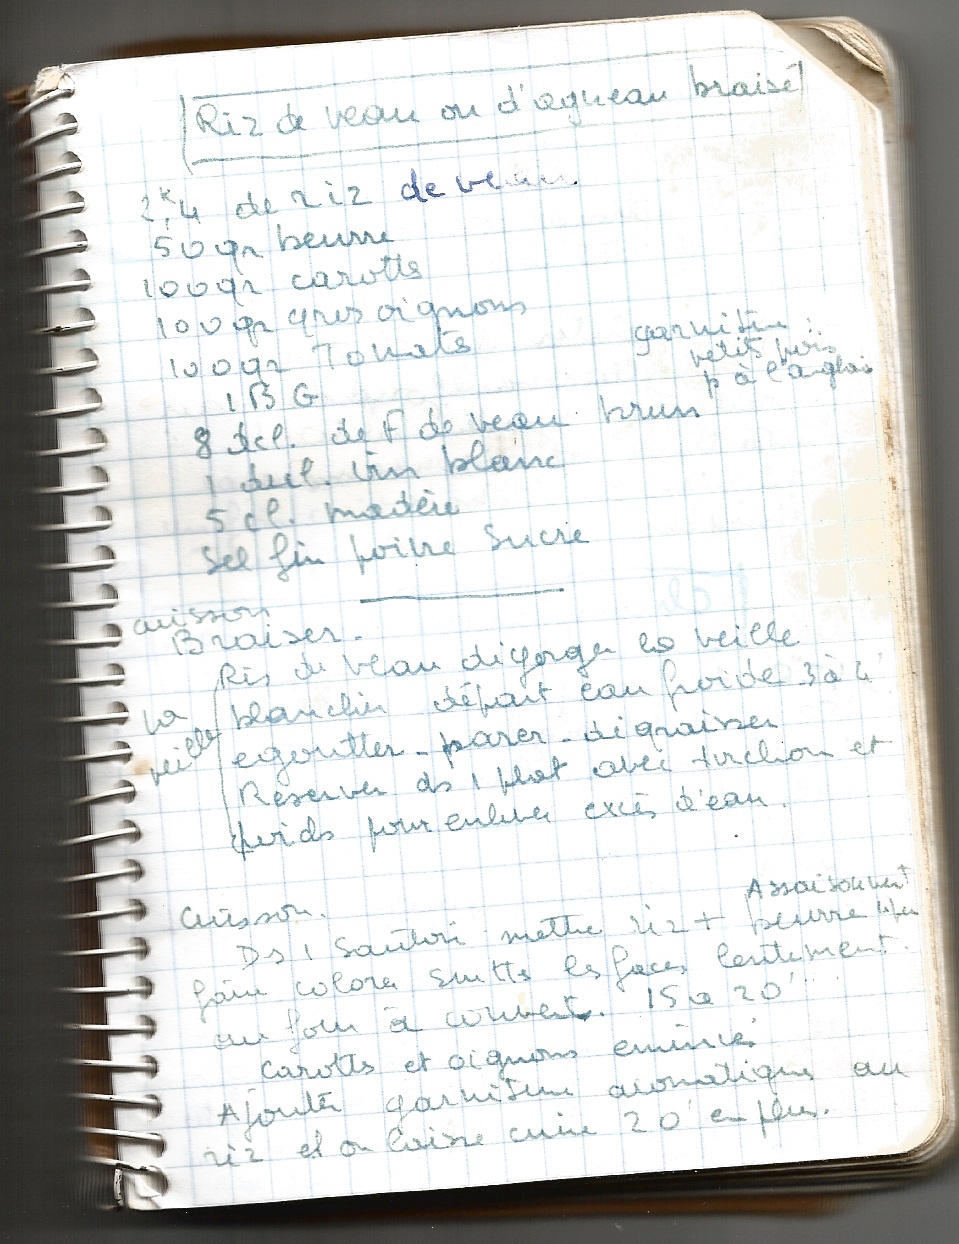 Riz de veau ou d'agneau braisé
2k,4 de riz de veau.
50 gr beurre
100 gr carotts
100 gr gros oignons
100 gr Tomats
1 B G
garniture :
petits pois
p à l'anglais
8 dcl. de F de veau brun
1 decl. Vin blanc
5 cl. madère
Sel fin poivre Sucre
cuisson
Braiser.
la veille
Ris de veau digorger la veille
blanchir départ eau froide 3 à 4'
egoutter - parer - digraisser
Réserver ds 1 plat avec torchon et
poids pour enlever excès d'eau.
cuisson.
Assaisonnent
Ds 1 Sautoir mettre riz + beurre
faire colorer sur tts les faces lentement.
au four à couvert. 15 à 20'
carotts et oignons émincés
Ajouter garniture aromatique au
riz et on laisse cuire 20' en plus.